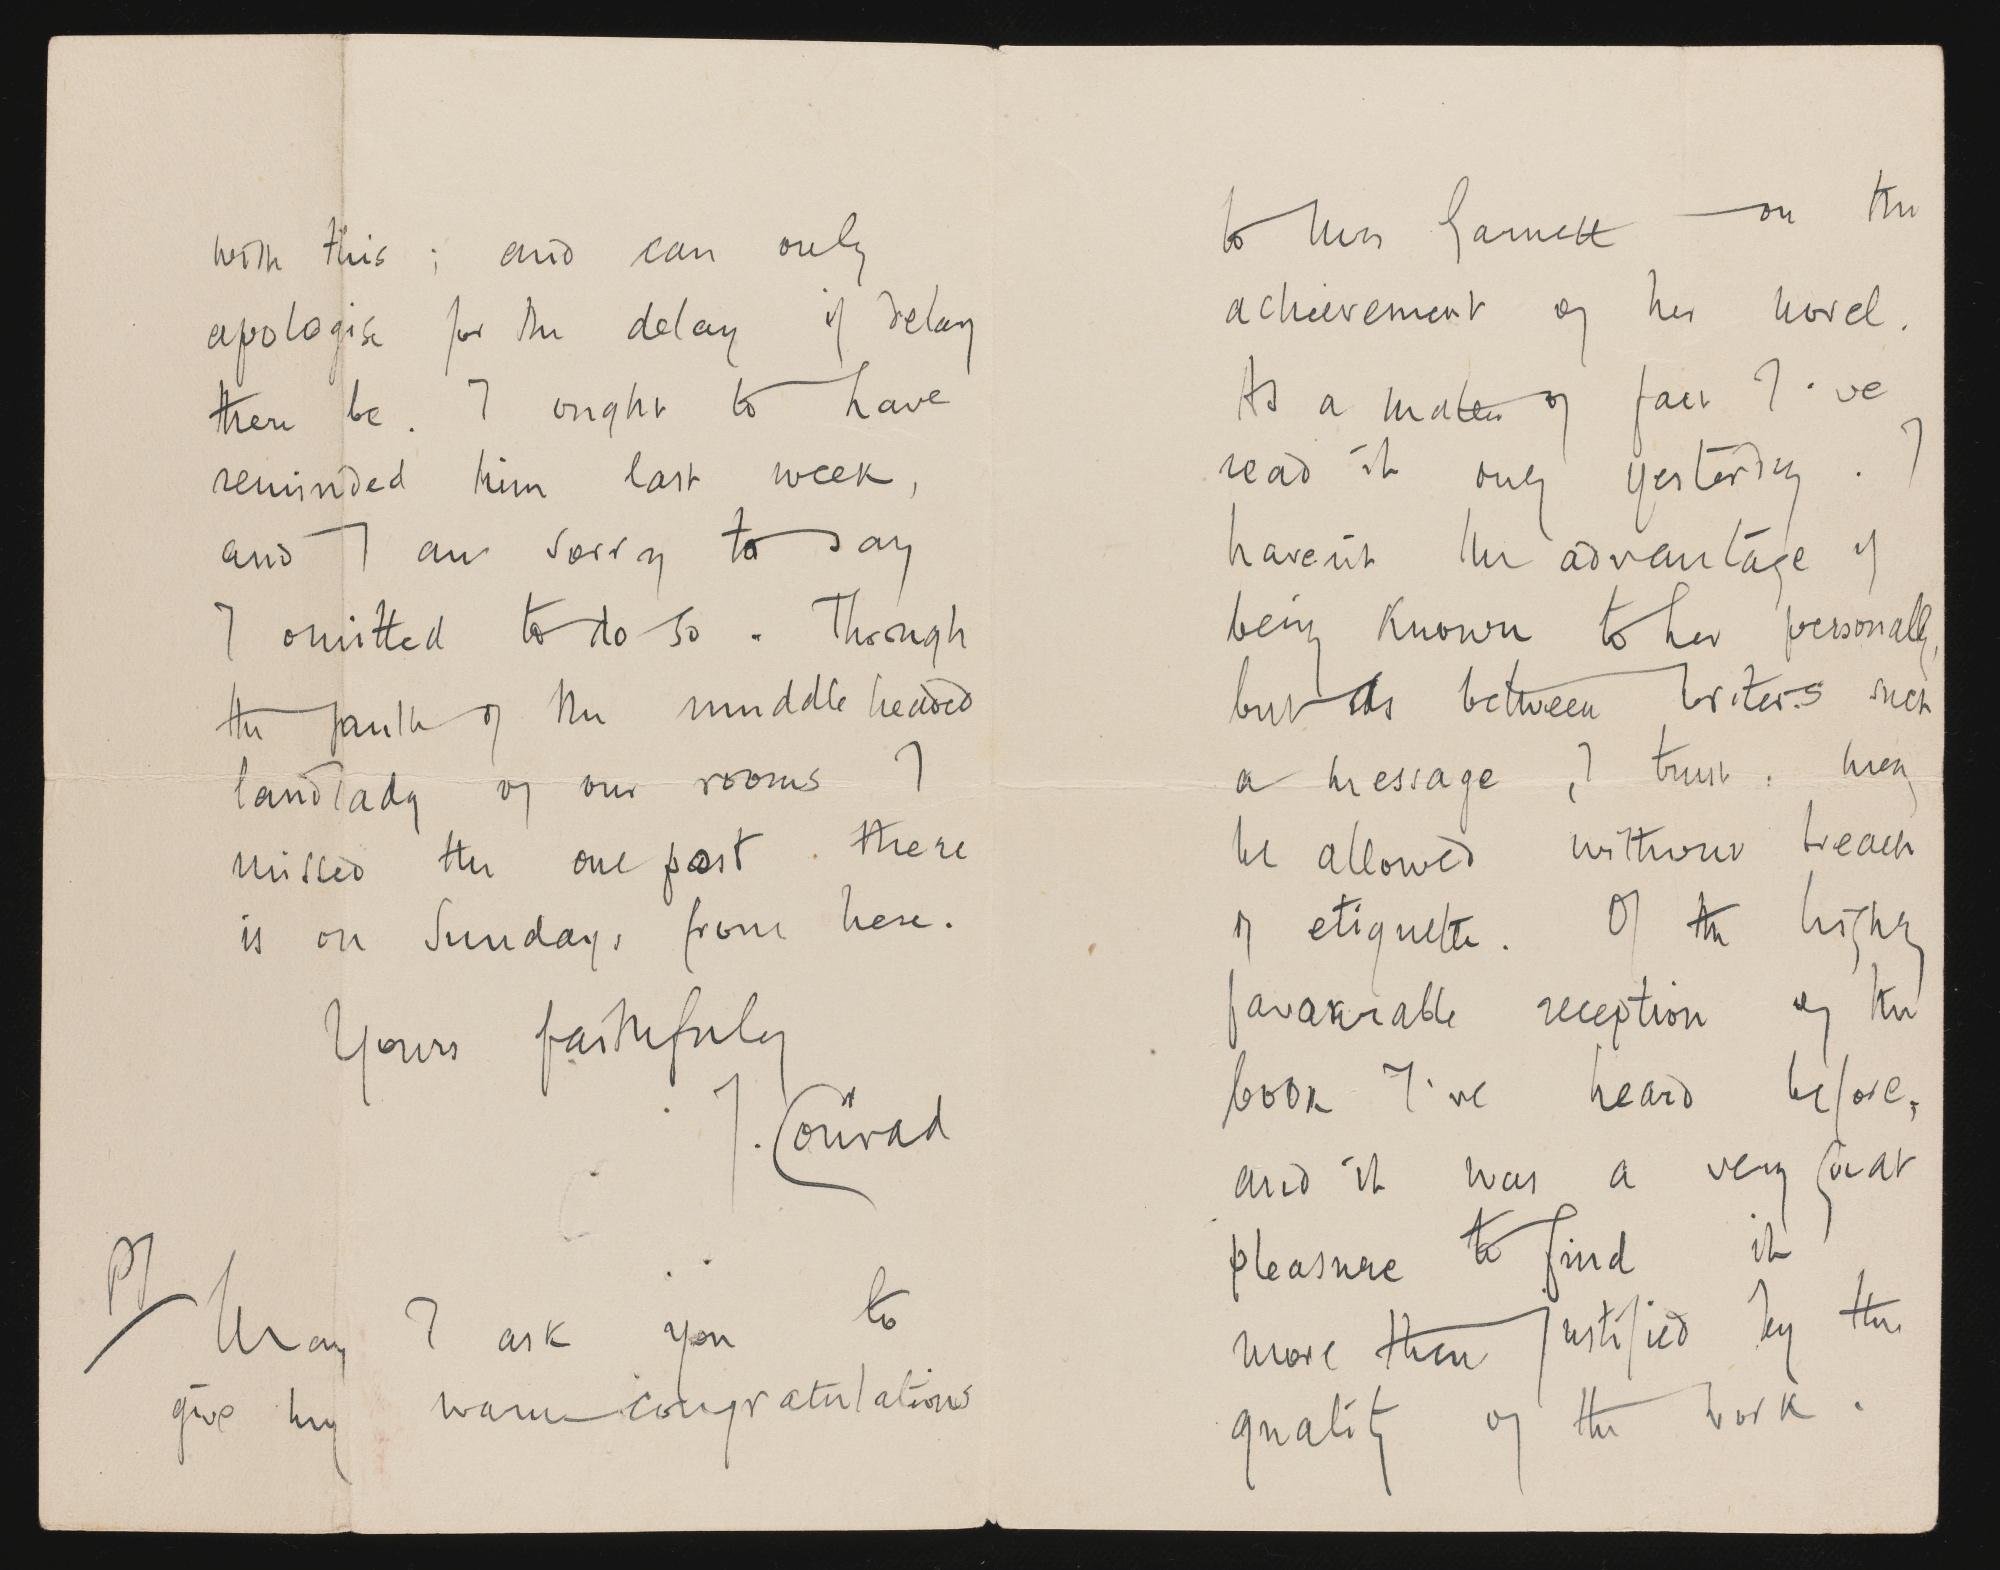 with this; and can only
apologise for the delay if delay
there be. I ought to have
reminded him last week,
and I am sorry to say
I omitted to do so. Through
the fault of the muddleheaded
landlady of our rooms I
missed the one post there
is on Sundays from here.
Yours faithfully
J. Conrad
PS May I ask you to
give my warm congratulations
to Mrs Garnett — on the
achievement of her novel.
As a matter of fact I've
read it only yesterday. I
haven't the advantage of
being known to her personally,
but as between writers such
a message, I trust, may
be allowed without breach
of etiquette. Of the highly
favourable reception of the
book I've heard before,
and it was a very great
pleasure to find it
more than justified by the
quality of the work.